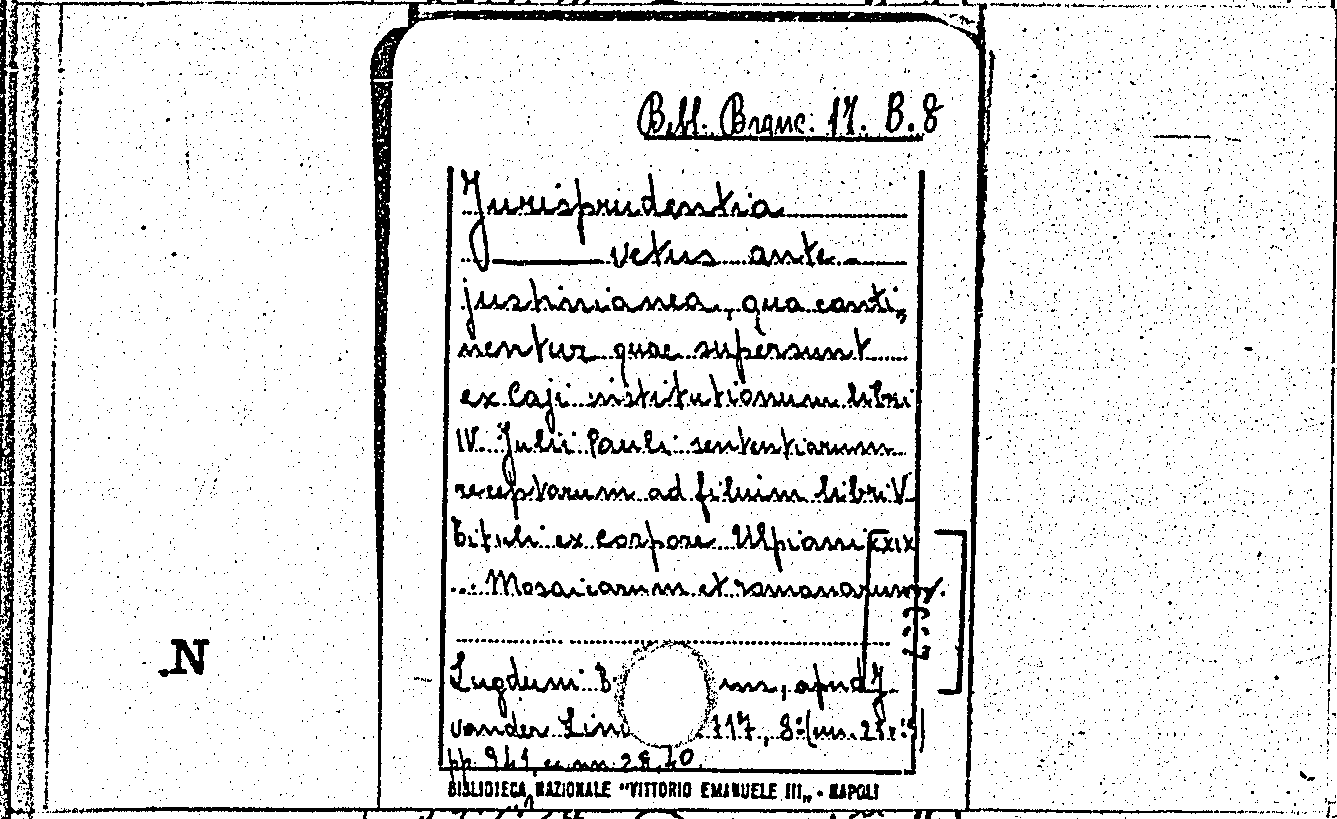 Bibl. Branc. 17. B. 8
Jurisprudentia
vetus ante
justinianea, qua conti„
nentur quae supersunt
ex Caji institutionum libri
IV. Julii Pauli sententiarum
receptarum ad filium libri V
Tituli ex corpore Ulpiani XXIX
... Mosaicarum et romanarum
Lugduni B ns, apud J
vander Lin 8°
pp.
BIBLIOTECA NAZIONALE "VITTORIO EMANUELE III„ - NAPOLI
.N